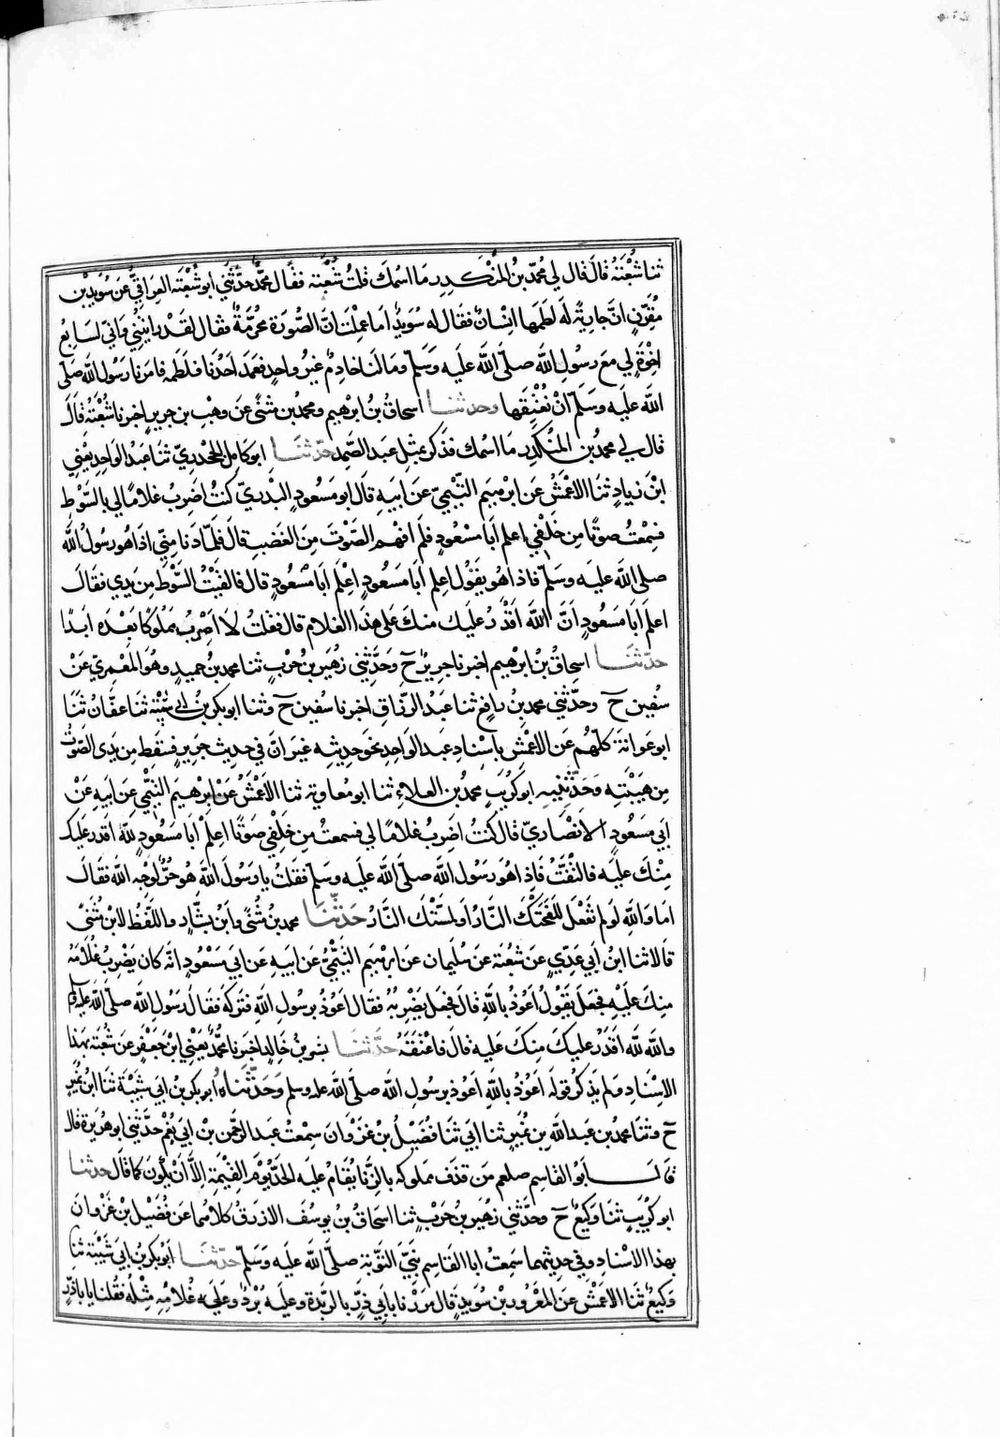 ثنا شعبة قال قال لي محمد بن المنكدر ما اسمك قلت شعبة فقال محمد حدثني ابو شعبة العراقي عن سويد بن
مقرن ان جارية له لطمها انسان فقال له سويد اما علمت ان الصورة محرمة فقال لقد رايتني واني لسابع
اخوة لي مع رسول الله صلى الله عليه وسلم وما لنا خادم غير واحد فعمد احدنا فلطمه فامرنا رسول الله صلى
الله عليه وسلم ان نعتقها وحدثنا اسحاق بن ابرهيم ومحمد بن مثنى عن وهب بن جرير اخبرنا شعبة قال
قال لي محمد بن المنكدر ما اسمك فذكر بمثل عبد الصمد حدثنا ابو كامل الجحدري ثنا عبد الواحد يعني
ابن زياد ثنا الاعمش عن ابرهيم التيمي عن ابيه قال ابو مسعود البدري كنت اضرب غلاما لي بالسوط
فسمعت صوتا من خلفي اعلم ابا مسعود فلم افهم الصوت من الغضب قال فلما دنا مني اذا هو رسول الله
صلى الله عليه وسلم فاذا هو يقول اعلم ابا مسعود اعلم ابا مسعود قال فالقيت السوط من يدي فقال
اعلم ابا مسعود ان الله اقدر عليك منك على هذا الغلام قال فقلت لا اضرب مملوكا بعده ابدا
حدثنا اسحاق بن ابرهيم اخبرنا جرير ح وحدثني زهير بن حرب ثنا محمد بن حميد وهو المعمري عن
سفين ح وحدثني محمد بن رافع ثنا عبد الرزاق اخبرنا سفين ح وثنا ابو بكر بن ابي شيبة ثنا عفان ثنا
ابو عوانة كلهم عن الاعمش باسناد عبد الواحد نحو حديثه غير ان في حديث جرير فسقط من يدى الصوت
من هيبته وحدثنيه ابو كريب محمد بن العلاء ثنا ابو معاوية ثنا الاعمش عن ابرهيم التيمي عن ابيه عن
ابي مسعود الانصاري قال كنت اضرب غلاما لي فسمعت من خلفي صوتا اعلم ابا مسعود لله اقدر عليك
منك عليه فالتفت فاذا هو رسول الله صلى الله عليه وسلم فقلت يا رسول الله هو حر لوجه الله فقال
اما والله لو لم تفعل للفحتك النار او لمستك النار حدثنا محمد بن مثنى وابن بشار واللفظ لابن مثنى
قالا ثنا ابن ابي عدي عن شعبة عن سليمان عن ابرهيم التيمي عن ابيه عن ابي مسعود انه كان يضرب غلامه
منك عليه فجعل يقول اعوذ بالله قال فجعل يضربه فقال اعوذ برسول الله فتركه فقال رسول الله صلى الله عليه
والله لله اقدر عليك منك عليه قال فاعتقه حدثنا بشر بن خالد اخبرنا محمد يعني ابن جعفر عن شعبة بهذا
الاسناد ولم يذكر قوله اعوذ بالله اعوذ برسول الله صلى الله عليه وسلم وحدثناه ابو بكر بن ابي شيبة ثنا ابن نمير
ح وثنا محمد بن عبد الله بن نمير ثنا ابي ثنا فضيل بن غزوان سمعت عبد الرحمن بن ابي نعم حدثني ابو هريرة قال
قال ابو القاسم صلعم من قذف مملوكه بالزنا يقام عليه الحد يوم القيمة الا ان يكون كما قال حدثنا
ابو كريب ثنا وكيع ح وحدثني زهير بن حرب ثنا اسحاق بن يوسف الازرق كلاهما عن فضيل بن غزوان
بهذا الاسناد وفي حديثهما سمعت ابا القاسم نبي التوبة صلى الله عليه وسلم حدثنا ابو بكر بن ابي شيبة ثنا
وكيع ثنا الاعمش عن المعرور بن سويد قال مررنا بابي ذر بالربذة وعليه برد وعلى غلامه مثله فقلنا يا باذر